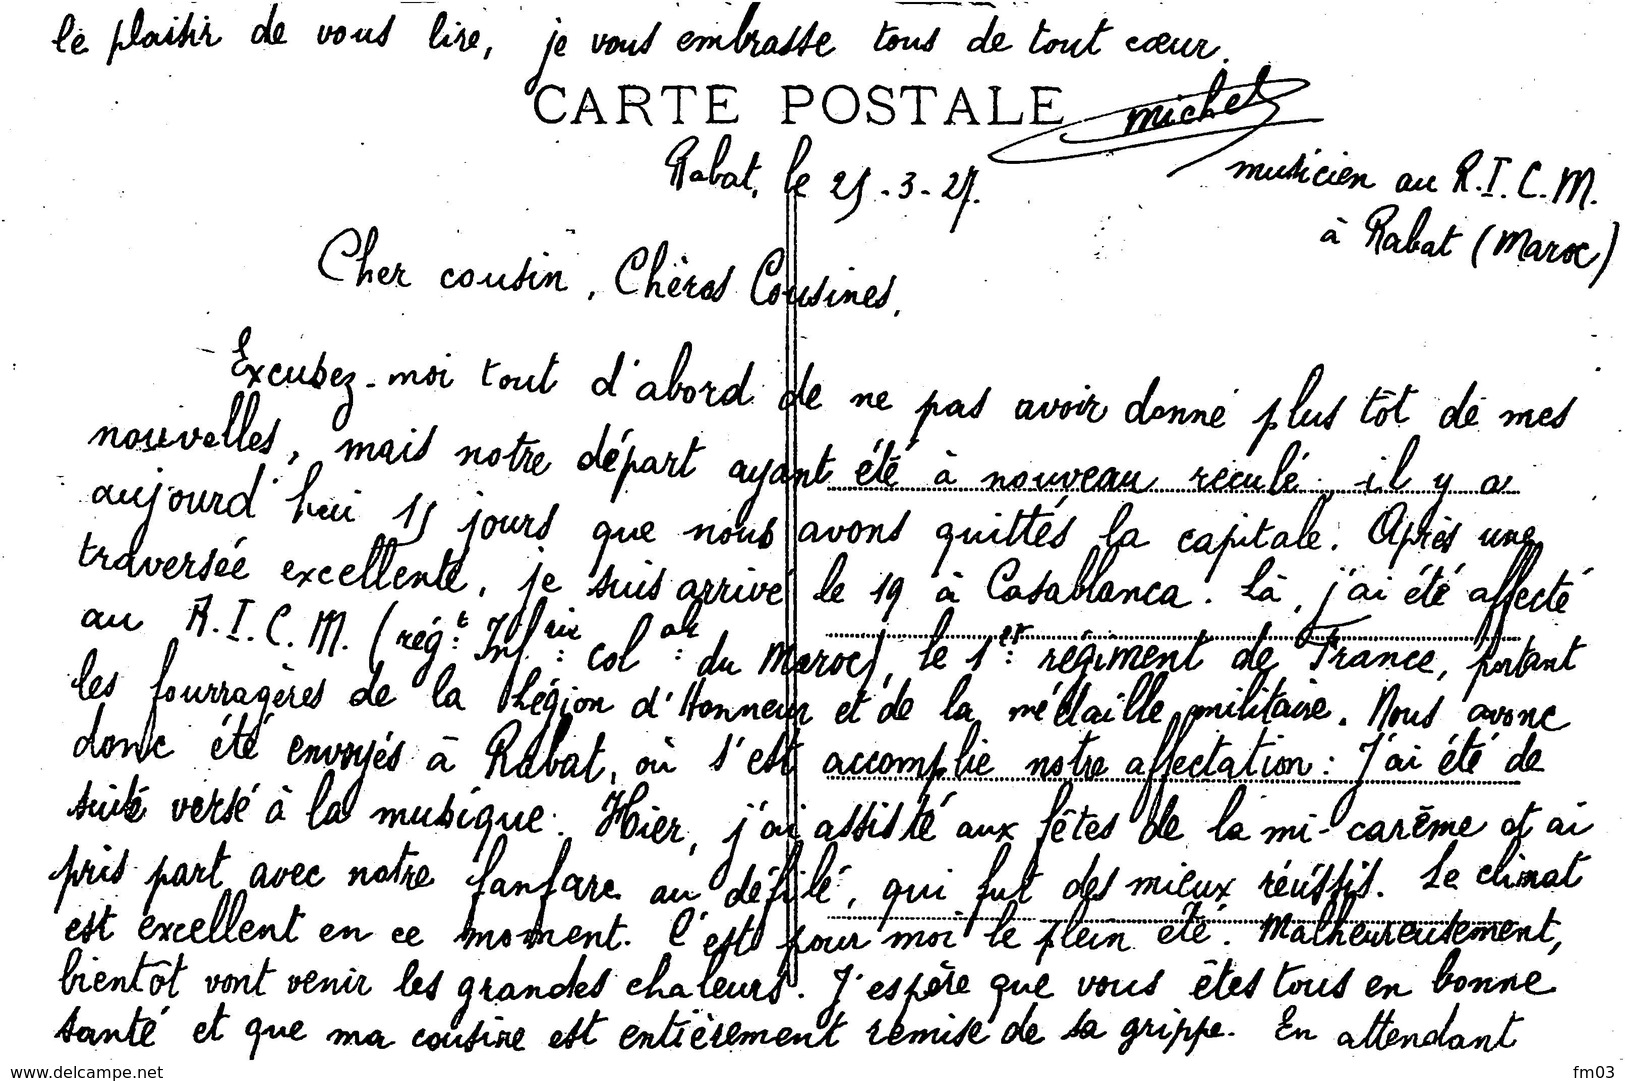 le plaisir de vous lire, je vous embrasse tous de tout cœur.
CARTE POSTALE
Michel
musicien au R.I.C.M.
à Rabat (Maroc)
Rabat, le 25-3-27.
Cher cousin, Chères Cousines,
Excusez-moi tout d'abord de ne pas avoir donné plus tôt de mes
nouvelles, mais notre départ ayant été à nouveau reculé, il y a
aujourd'hui 15 jours que nous avons quittés la capitale. Après une
traversée excellente, je suis arrivé le 19 à Casablanca. Là, j'ai été affecté
au R.I.C.M. (régt Infrie colale du Maroc), le 1er régiment de France, portant
les fourragères de la Légion d'Honneur et de la médaille militaire. Nous avons
donc été envoyés à Rabat, où s'est accomplie notre affectation: J'ai été de
suite versé à la musique. Hier, j'ai assisté aux fêtes de la mi-carême et ai
pris part avec notre fanfare au défilé, qui fut des mieux réussis. Le climat
est excellent en ce moment. C'est pour moi le plein été. Malheureusement,
bientôt vont venir les grandes chaleurs. J'espère que vous êtes tous en bonne
santé et que ma cousine est entièrement remise de sa grippe. En attendant
www.delcampe.net
fm03